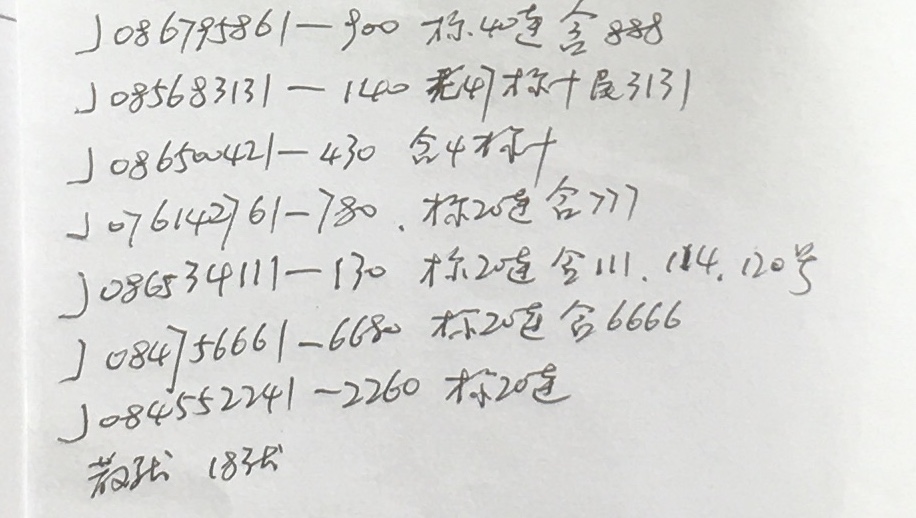 J086795861—900 标.40连含888
J085683131—140 无47标十尾3131
J086500421—430 含4标十
J076142761—780. 标20连含777
J086534111—130 标20连含111.114.120号
J084756661—6680 标20连含6666
J084552241—2260 标20连
散张 18张